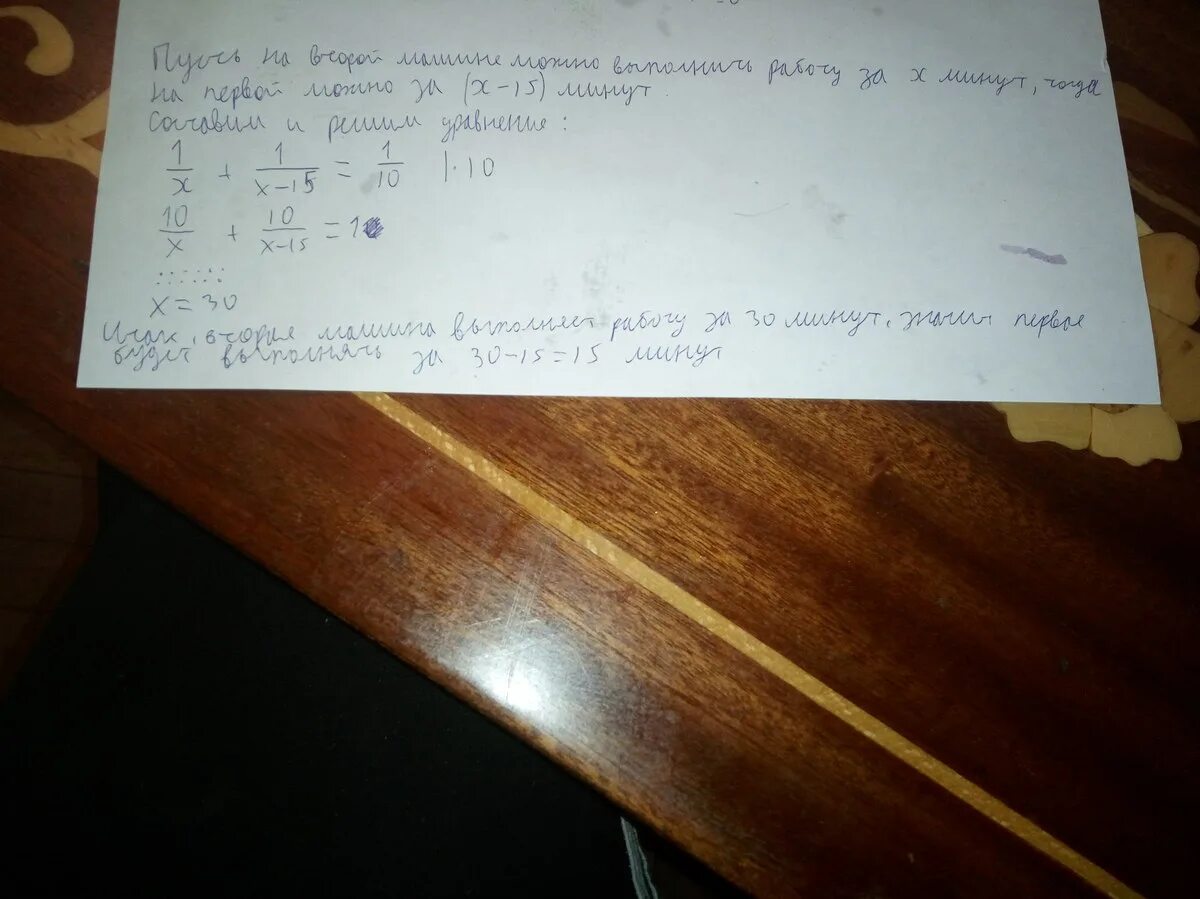 Пусть на второй машине можно выполнить работу за x минут, тогда
на первой можно за (x-15) минут.
Составим и решим уравнение:
1/x + 1/(x-15) = 1/10 |·10
10/x + 10/(x-15) = 1
......
x = 30
Итак, вторая машина выполняет работу за 30 минут, значит первая
будет выполнять за 30-15=15 минут